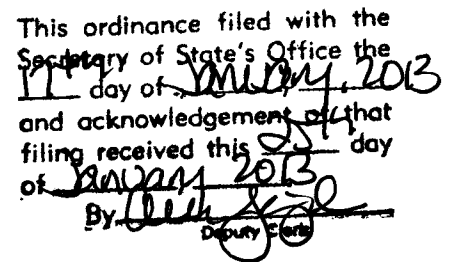 This ordinance filed with the
Secretary of State's Office the
17th day of January, 2013
and acknowledgement of that
filing received this day
of January 2013
By
Deputy Clerk